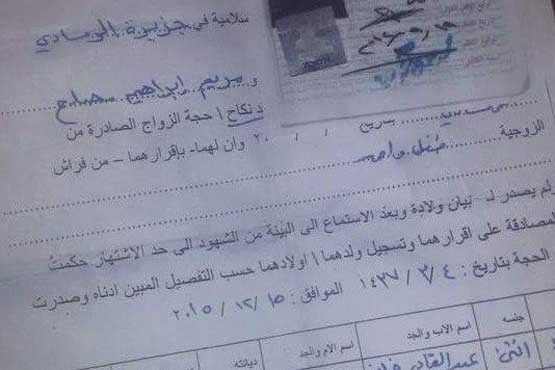 سلامية في جزيرة البوسادي
و مريم ابراهيم صالح
د نكاح / حجة الزواج الصادرة من
بتاريخ / / ٢٠ وان لهما- بإقرارهما - من فراش
الزوجية طفل واحد
لم يصدر لـ - بيان ولادة وبعد الاستماع الى البينة من الشهود الى حد الاشتهار حكمتُ
مصادقة على إقرارهما وتسجيل ولدهما / اولادهما حسب التفصيل المبين ادناه وصدرت
الحجة بتاريخ : ٤ / ٣ / ١٤٣٧ الموافق : ١٥ / ١٢ / ٢٠١٥
جنسه اسم الاب والجد اسم الام والجد ديانته
انثى عبد القادر